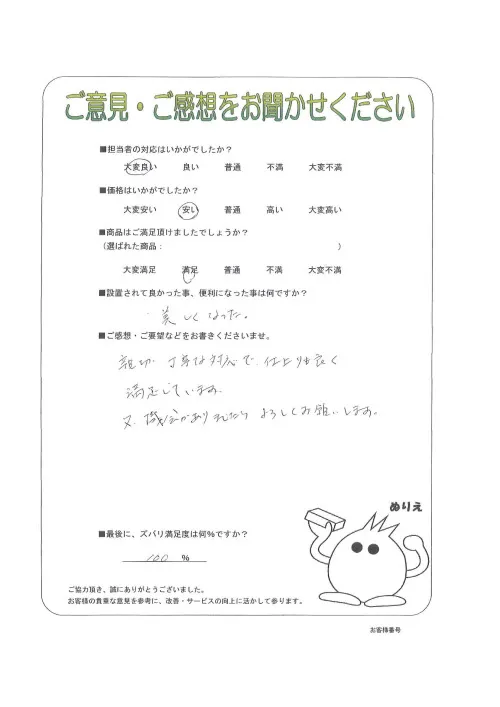 ご意見・ご感想をお聞かせください
■担当者の対応はいかがでしたか？
大変良い 良い 普通 不満 大変不満
■価格はいかがでしたか？
大変安い 安い 普通 高い 大変高い
■商品はご満足頂けましたでしょうか？
（選ばれた商品： ）
大変満足 満足 普通 不満 大変不満
■設置されて良かった事、便利になった事は何ですか？
・美しくなった。
■ご感想・ご要望などをお書きくださいませ。
親切 丁寧な対応で、仕上りも良く
満足しています。
又、機会がありましたら よろしくお願いします。
ぬりえ
■最後に、ズバリ満足度は何％ですか？
100 ％
ご協力頂き、誠にありがとうございました。
お客様の貴重な意見を参考に、改善・サービスの向上に活かして参ります。
お客様番号